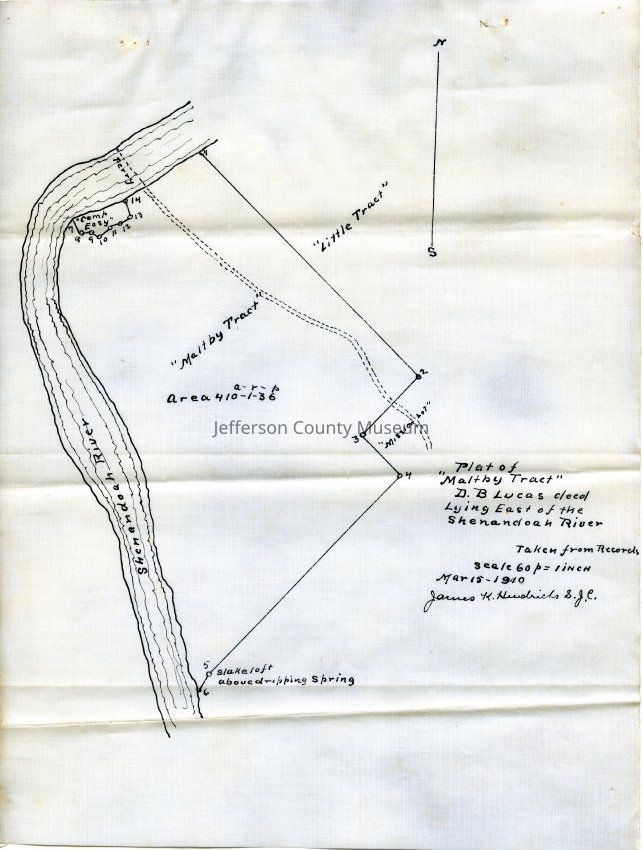 N
Ferry
1
14
"Camp
Easy"
13
7
8 9 10 11 12
"Little Tract"
S
"Maltby Tract"
2
a - r - p
Area 410-1-36
3
Jefferson County Museum
4
Plat of
"Maltby Tract"
D. B Lucas deed
Lying East of the
Shenandoah River
Shenandoah River
Taken from Records
Scale 60 p = 1 inch
Mar 15 - 1910
James K. Hendricks S. J. C.
5
Stake loft
above dripping Spring
6